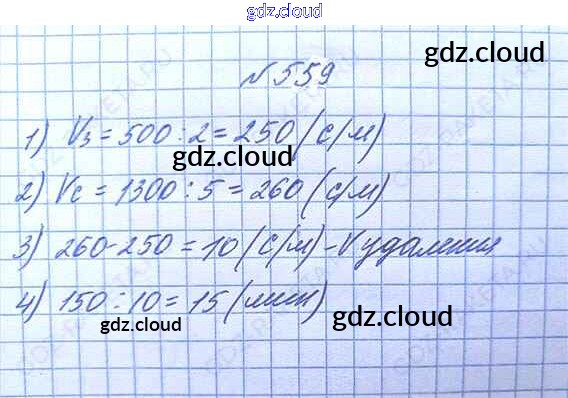 gdz.cloud
№559
gdz.cloud
1) Vз = 500 : 2 = 250 (с/м)
gdz.cloud
2) Vс = 1300 : 5 = 260 (с/м)
3) 260 - 250 = 10 (с/м) - V удаления
4) 150 : 10 = 15 (мин)
gdz.cloud
gdz.cloud